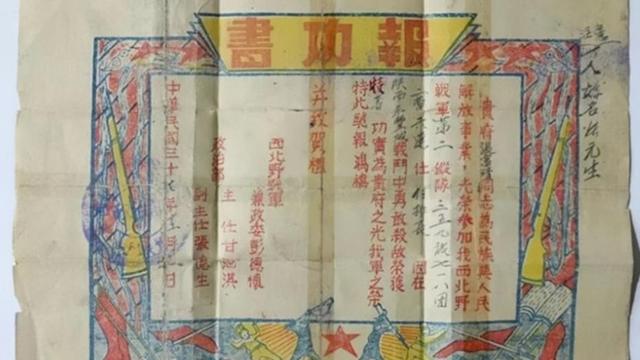 報功書
貴府張富清同志為民族與人民
解放事業，光榮參加我西北野
戰軍第二縱隊三五九旅七一八團
二營六連任 因在
戰鬥中勇敢殺敵榮獲
特等功實為貴府之光我軍之榮
特此馳報鴻禧
并致賀禧
西北野戰軍
兼政委彭德懷
政治部
主任甘泗淇
副主任張德生
中華民國三十七年 月 日